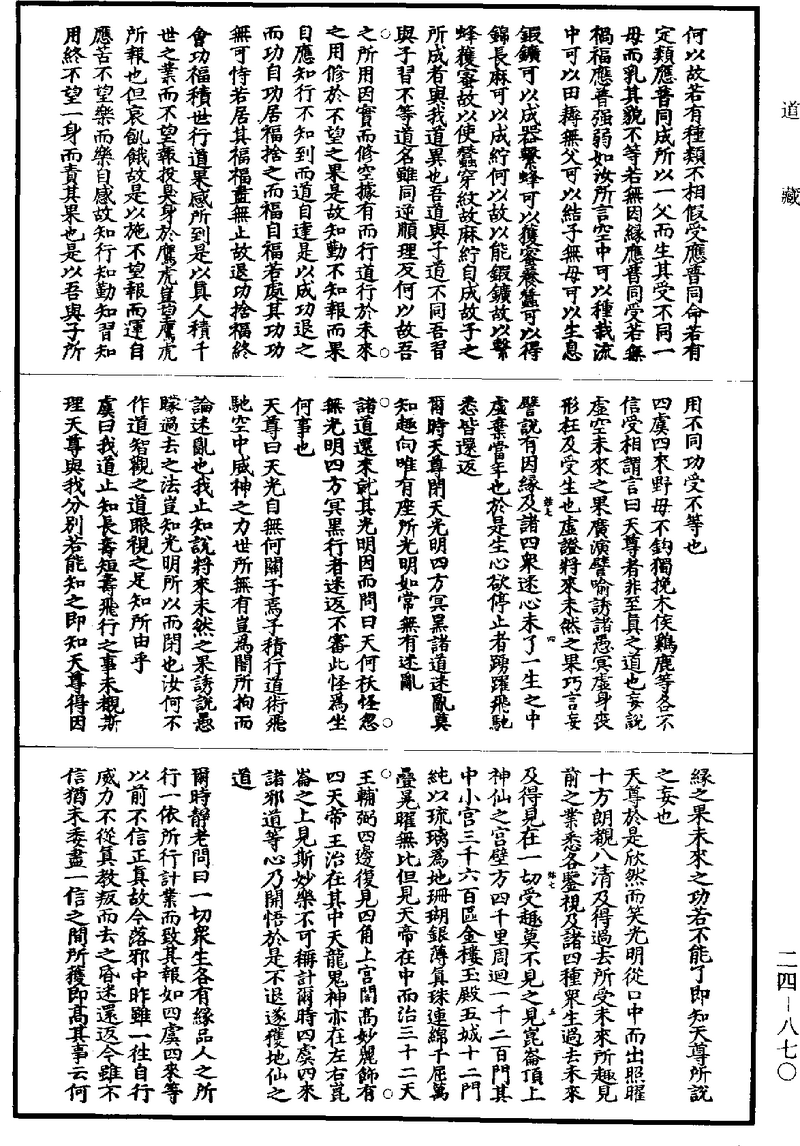 道藏
何以故若有種類不相假受應普同命若有
定類應普同成所以一父而生其受不同一
毋而乳其貌不等若無因緣應普同受若無
禍福應普强弱如汝所言空中可以種栽流
中可以田耨無父可以結子無母可以生息
鍜鑛可以成器繫蜂可以獲蜜養蠶可以得
錦長麻可以成紵何以故以能鍜鑛故以繫
蜂獲蜜故以使蠶穿紋故麻紵自成故子之
所成者與我道異也吾道與子道不同吾習
與子習不等道名雖同逆順理反何以故吾
之所用因實而修空據有而行道行於未來
之用修於不望之果是故知勤不知報而果
自應知行不知到而道自達是以成功退之
而功自功居福捨之而福自福若處其功功
無可恃若居其福福盡無止故退功捨福終
會功福積世行道果感所到是以真人積千
世之業而不望報投臭身於鷹虎豈望鷹虎
所報也但哀飢餓故是以施不望報而運自
應苦不望樂而樂自感故知行知勤知習知
用終不望一身而責其果也是以吾與子所
用不同功受不等也
四虞四來野毋不鈎獨挽木侯鷄鹿等各不
信受相謂言曰天尊者非至真之道也妄說
虛空未來之果廣演譬喻誘諸愚冥虛身喪
形枉及受生也虛證將來未然之果巧言妄
譬說有因緣及諸四衆迷心未了一生之中
虛棄當年也於是生心欲停止者踴躍飛馳
悉皆還返
爾時天尊閉天光明四方冥黑諸道迷亂莫
知趣向唯有座所光明如常無有迷亂
諸道還來就其光明因而問曰天何袄怪忽
無光明四方冥黑行者迷返不審此怪爲坐
何事也
天尊曰天光自無何關子焉子積行道術飛
馳空中威神之力世所無有豈爲闇所拘而
論迷亂也我止知說將來未然之果誘說愚
矇過去之法豈知光明所以而閉也汝何不
作道智觀之道眼視之足知所由乎
虞曰我道止知長壽短壽飛行之事未覩斯
理天尊與我分別若能知之即知天尊得因
緣之果未來之功若不能了即知天尊所說
之妄也
天尊於是欣然而笑光明從口中而出照曜
十方朗觀八清及得過去所受未來所趣見
前之業悉各鑒視及諸四種衆生過去未來
及得見在一切受趣莫不見之見崑崙頂上
神仙之宮壁方四千里周迴一千二百門其
中小宮三千六百區金樓玉殿五城十二門
純以琉璃爲地珊瑚銀薄真珠連綿千屈萬
疊晃曜無比但見天帝在中而治三十二天
王輔弼四邊復見四角上宮閣高妙麗飾有
四天帝王治在其中天龍鬼神亦在左右崑
崙之上見斯妙樂不可稱計爾時四虞四來
諸邪道等心乃開悟於是不退遂獲地仙之
道
爾時靜老問曰一切衆生各有緣品人之所
行一依所行計業而致其報如四虞四來等
以前不信正真故令落邪中昨雖一往自行
威力不從真教叛而去之昏迷還返今雖不
信猶未委盡一信之間所獲即高其事云何
二四－八七〇